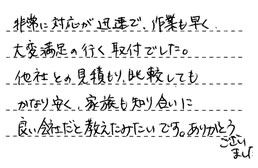 非常に対応が迅速で、作業も早く
大変満足の行く取付でした。
他社との見積もり、比較しても
かなり安く、家族も知り合いに
良い会社だと教えたみたいです。ありがとう
ござい
ました